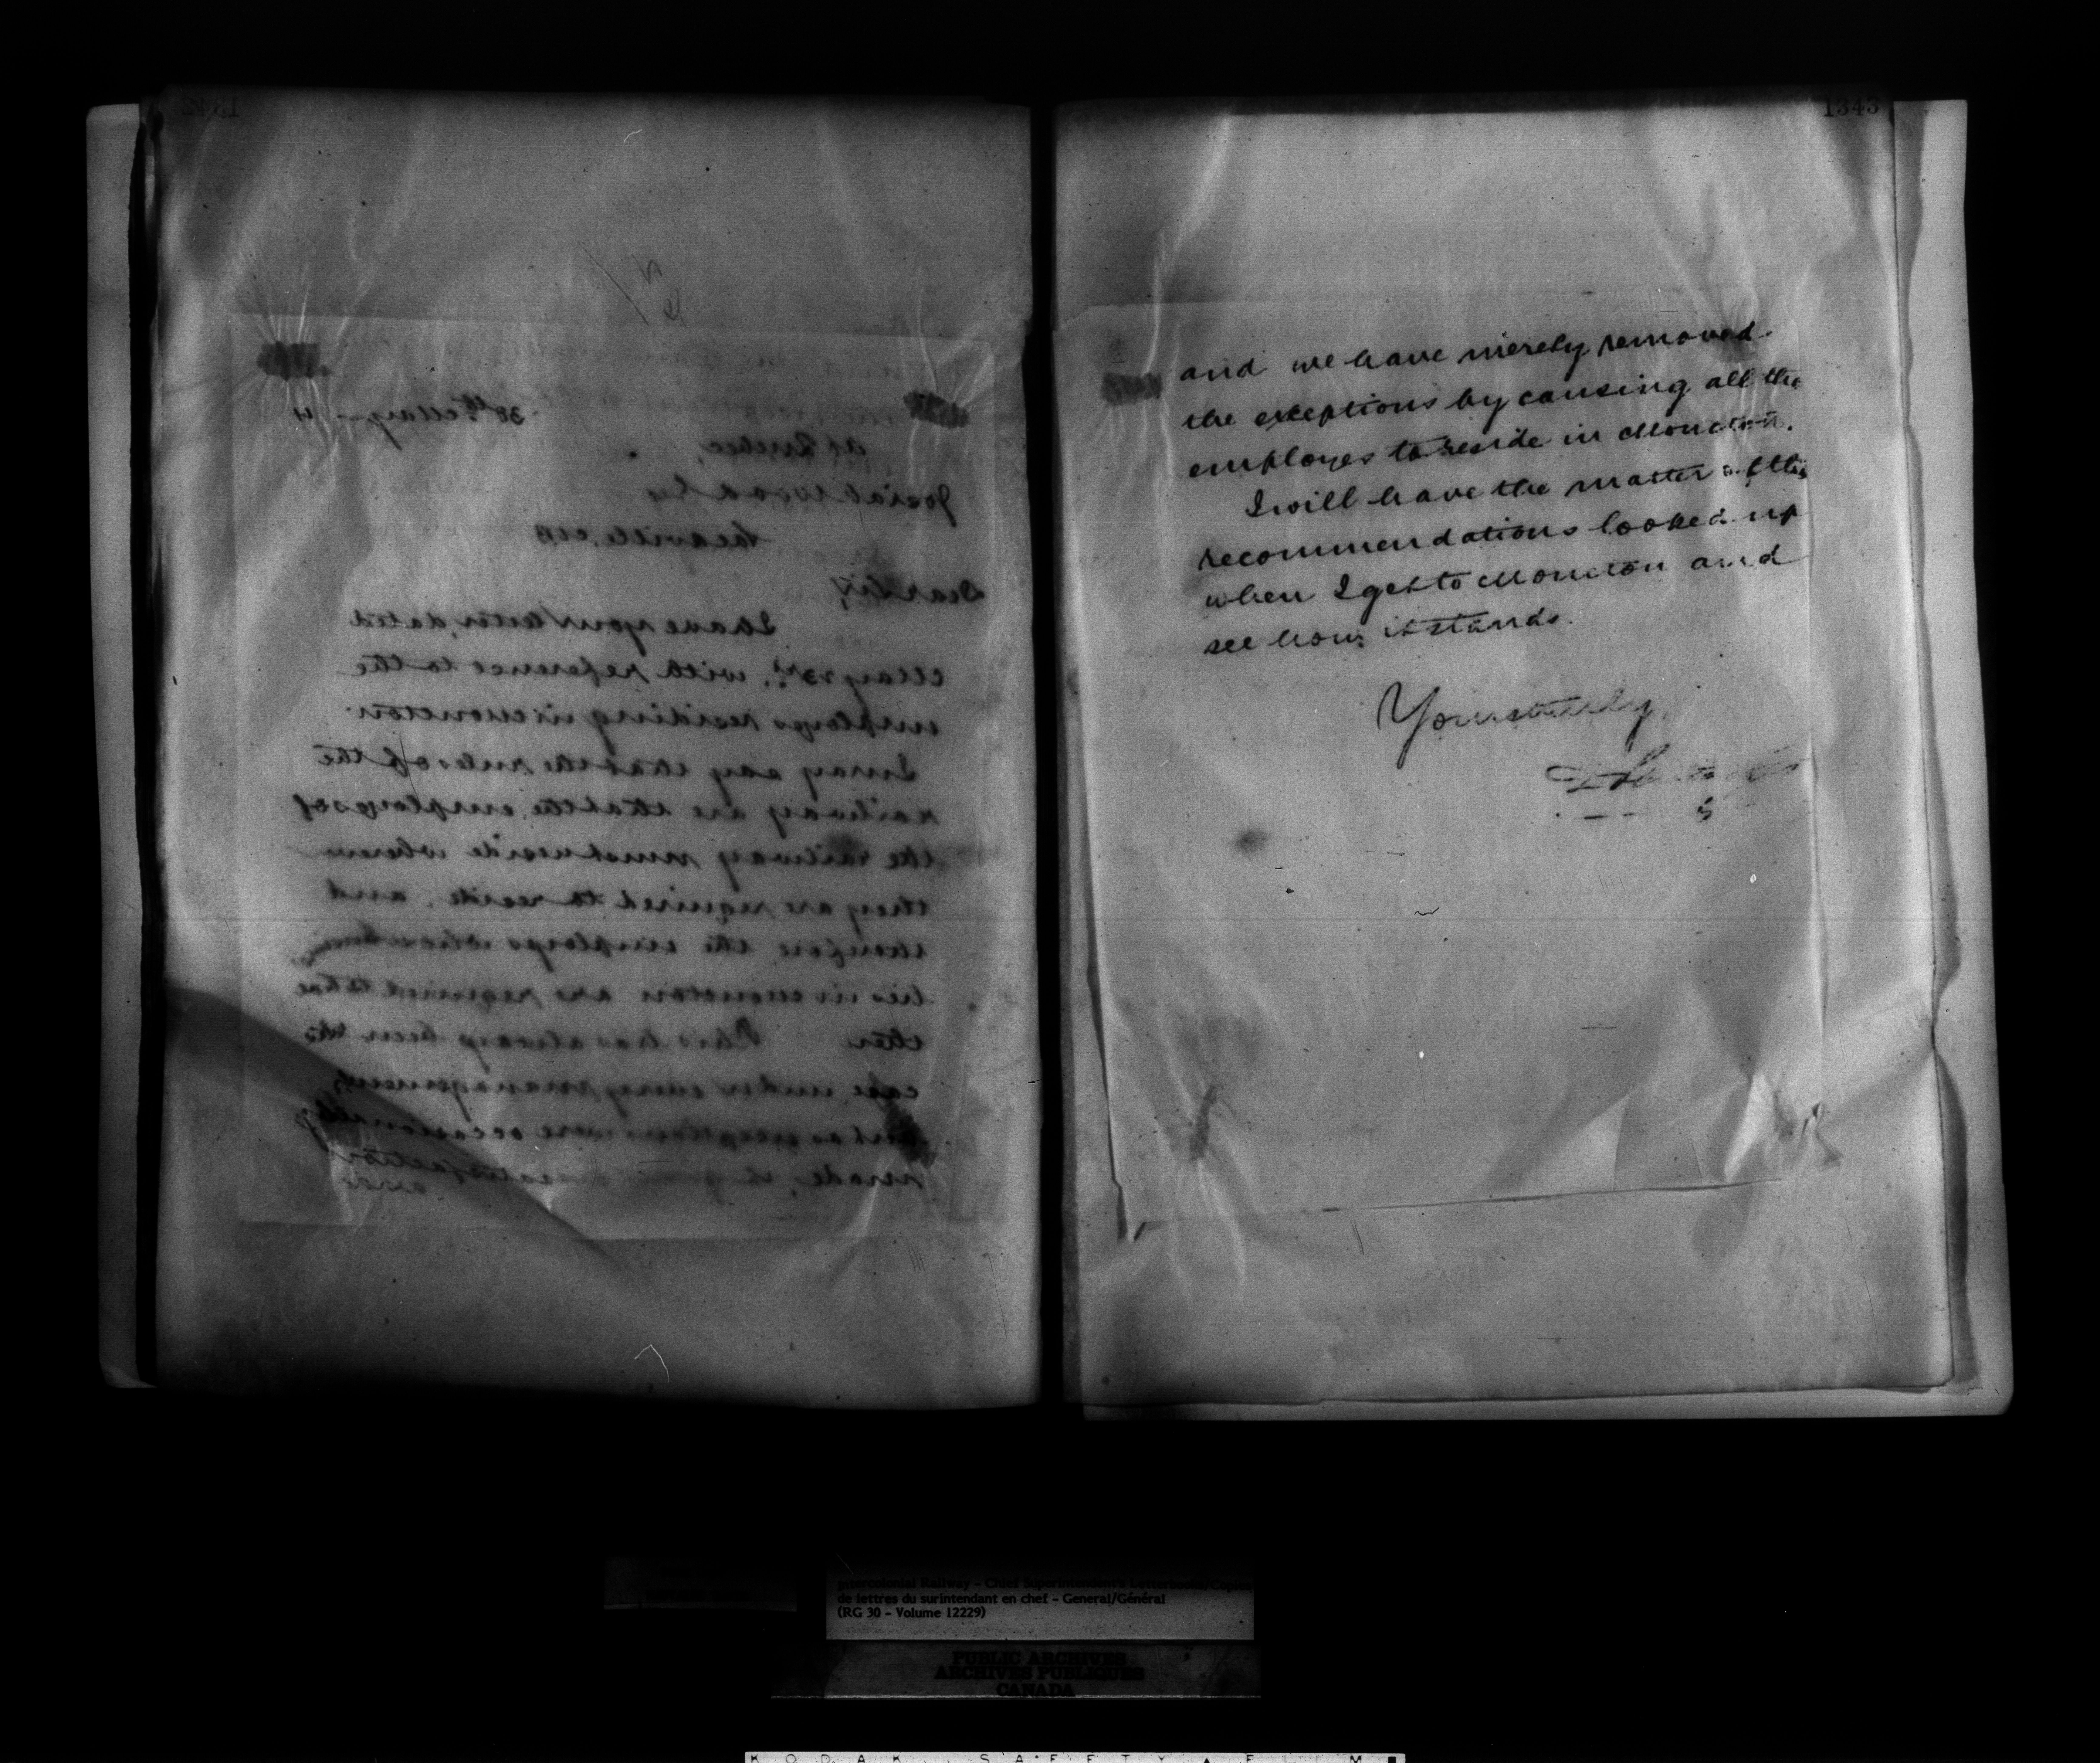 1342
30th May
At Quebec,
Josiah Wood Esq
Sackville, NB
Dear Sir,
I have your letter, dated
May 23rd, with reference to the
employes residing in Moncton
I may say that the rules of the
railway are that the employes of
the railway must reside where
they are required to reside, and
therefore the employes whose
lies in Moncton are required to live
there This has always been the
case under every management,
but as exceptions were occasionally
made, it gave dissatisfaction
and
1343
and we have merely removed
the exceptions by causing all the
employes to reside in Moncton.
I will have the matter of the
recommendations looked up
when I get to Moncton and
see how it stands.
Yours truly,
Intercolonial Railway - Chief Superintendent's Letterbooks/Copies
de lettres du surintendant en chef - General/Général
(RG 30 - Volume 12229)
PUBLIC ARCHIVES
ARCHIVES PUBLIQUES
CANADA
KODAK SAFETY FILM